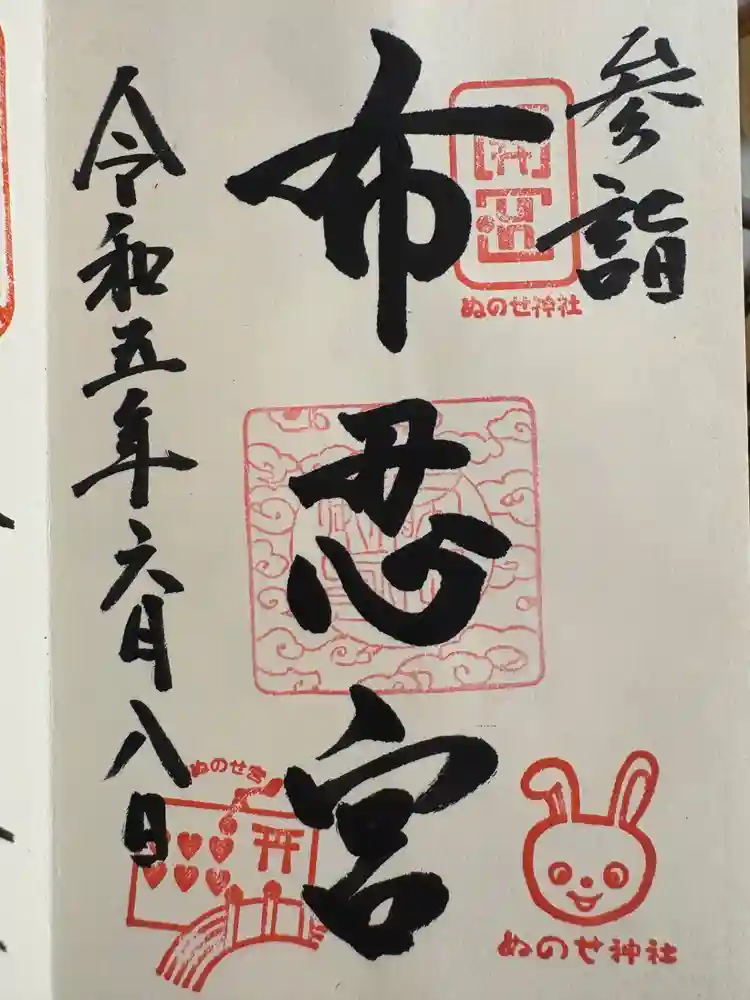 参詣
ぬのせ神社
布忍宮
ぬのせ神社
ぬのせ宮
令和五年六月八日